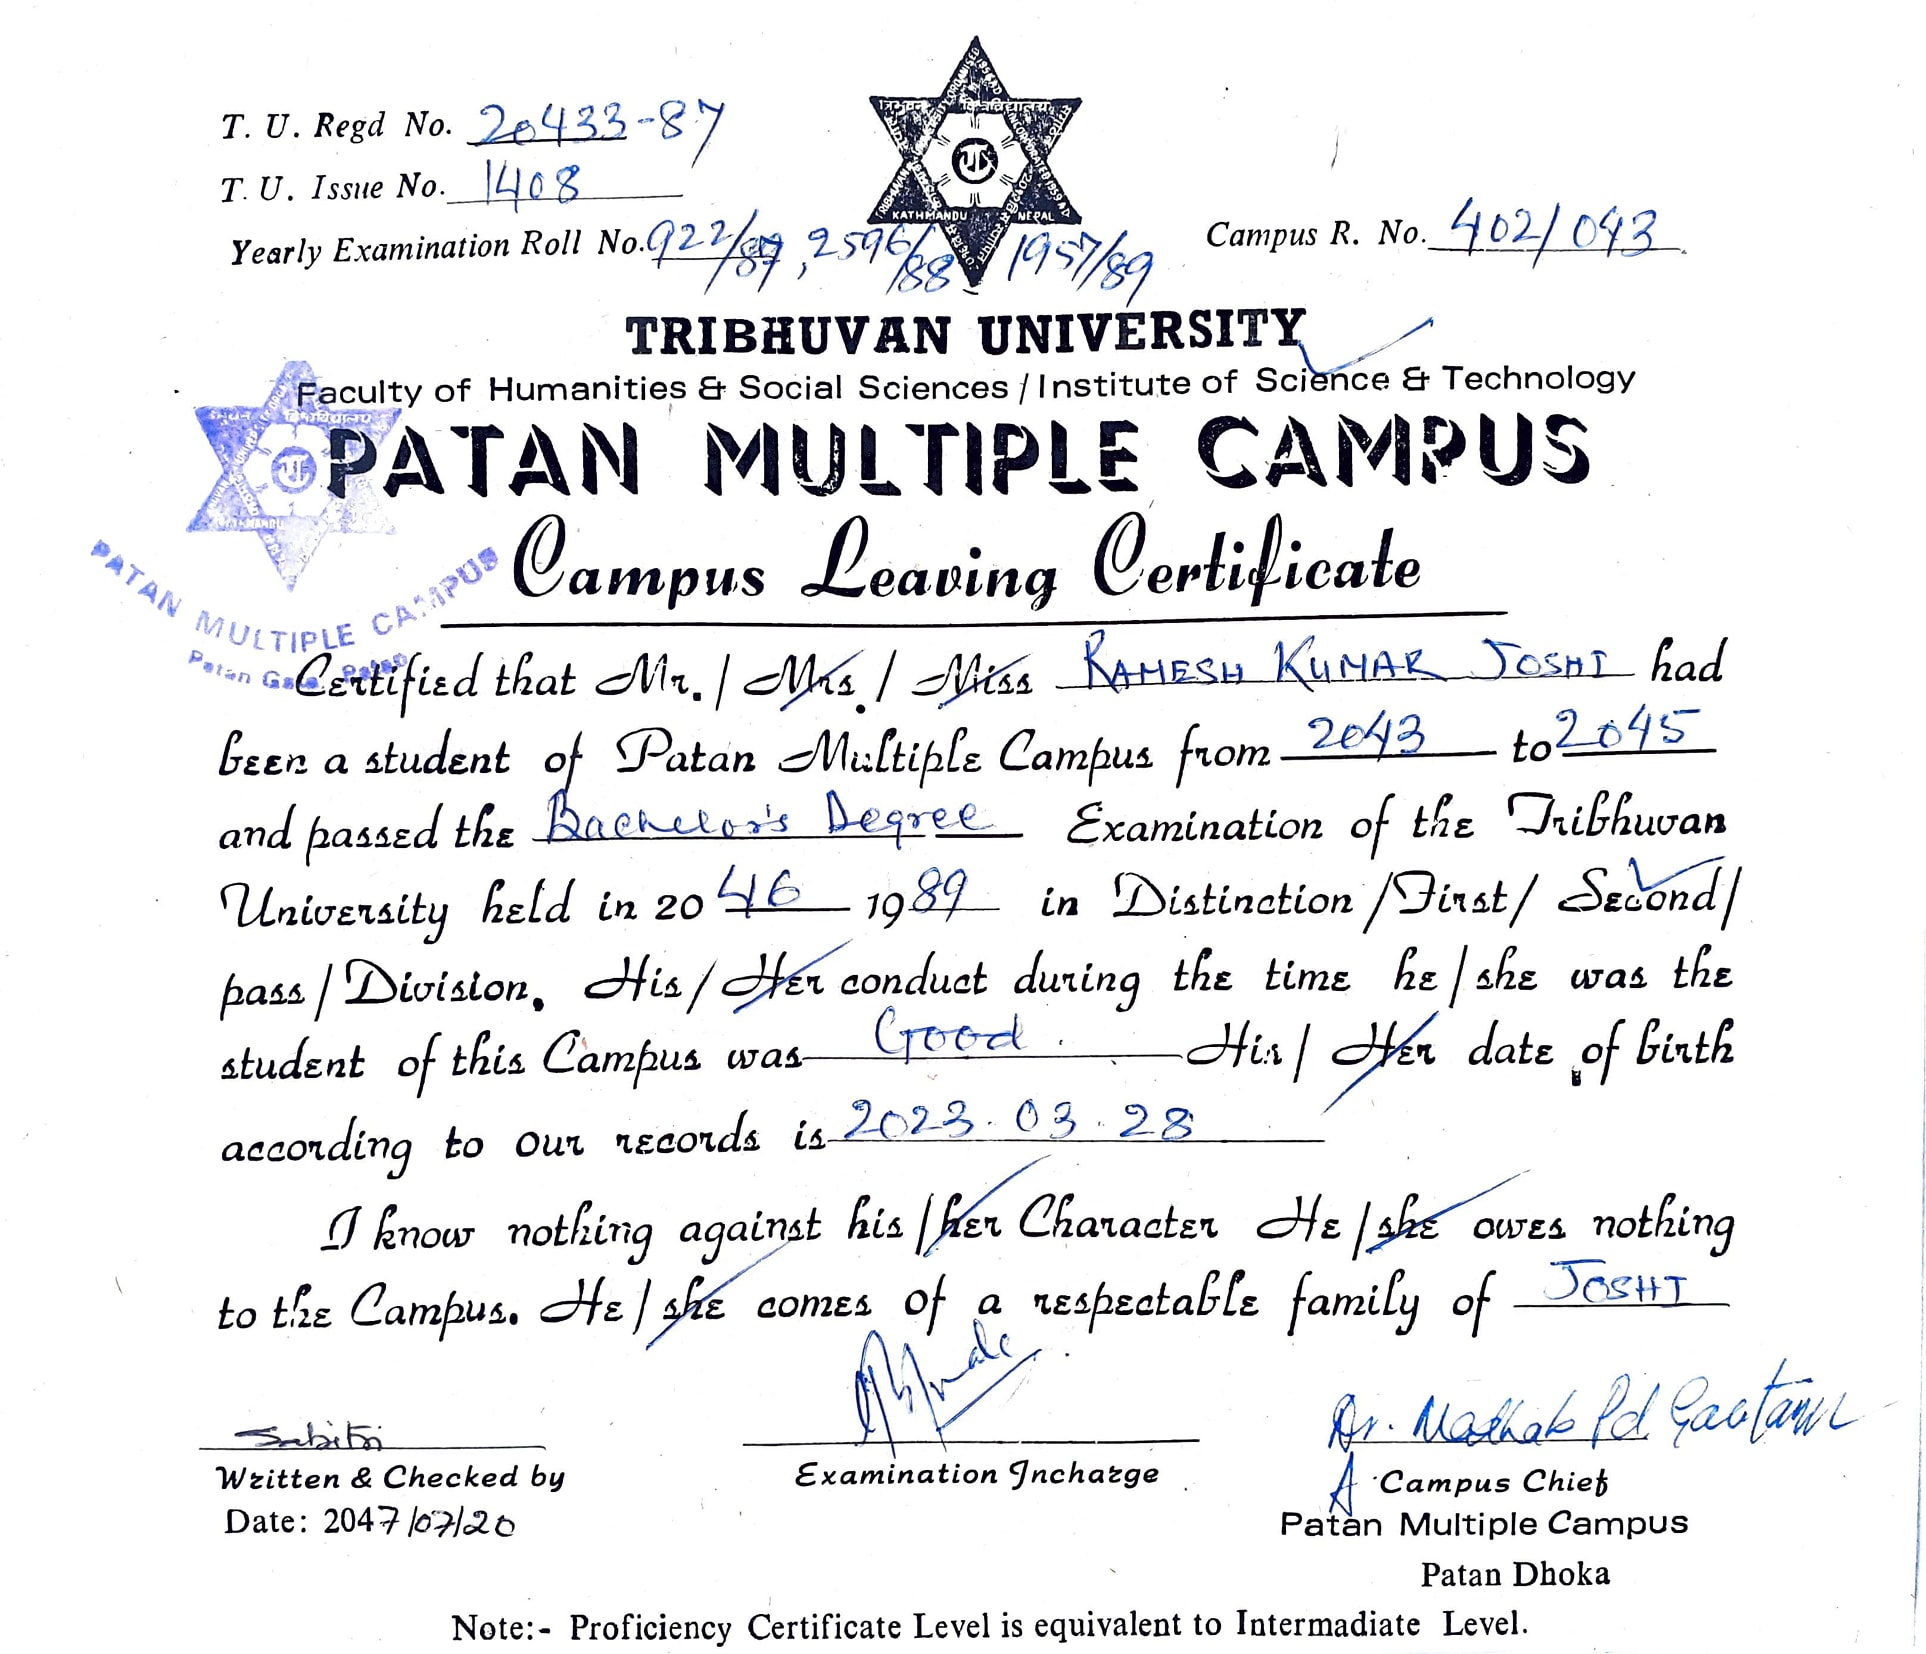 T. U. Regd No. 20433-87
T. U. Issue No. 1408
Yearly Examination Roll No. 922/87, 2596/88 1957/89
Campus R. No. 402/043
KATHMANDU NEPAL
TRIBHUVAN UNIVERSITY
Faculty of Humanities & Social Sciences / Institute of Science & Technology
PATAN MULTIPLE CAMPUS
Campus Leaving Certificate
PATAN MULTIPLE CAMPUS
Patan Gate, Patan
Certified that Mr. / Mrs. / Miss RAMESH KUMAR JOSHI had
been a student of Patan Multiple Campus from 2043 to 2045
and passed the Bachelor's Degree Examination of the Tribhuvan
University held in 20 46 1989 in Distinction / First / Second /
pass / Division. His / Her conduct during the time he / she was the
student of this Campus was Good. His / Her date of birth
according to our records is 2023.03.28
I know nothing against his / her Character He / she owes nothing
to the Campus. He / she comes of a respectable family of JOSHI
Sabitri
Dr. Madhab Pd Gautam
Written & Checked by
Examination Incharge
A Campus Chief
Date: 2047/07/20
Patan Multiple Campus
Patan Dhoka
Note:- Proficiency Certificate Level is equivalent to Intermadiate Level.